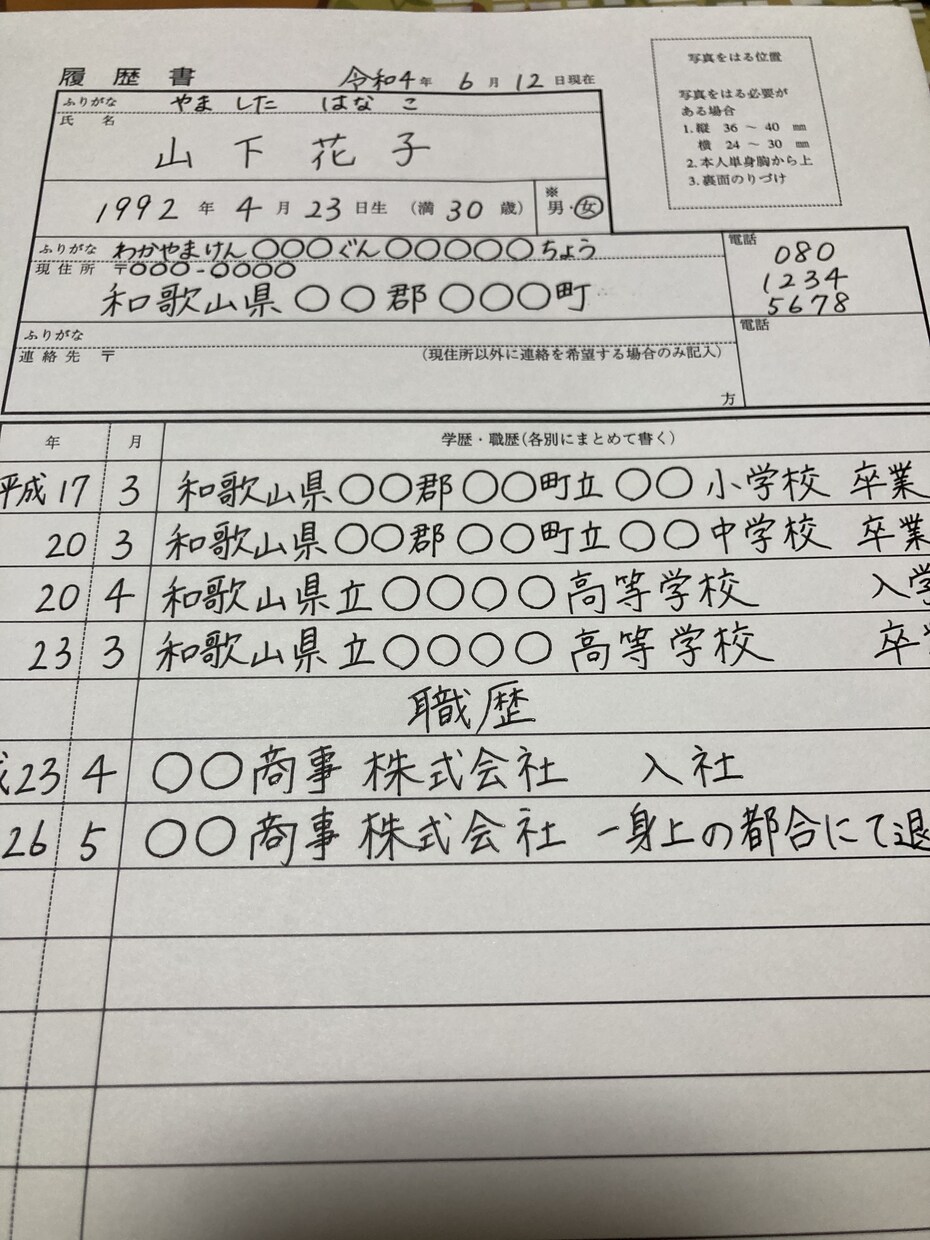 履歴書 令和4年 6月 12日現在
ふりがな やました はなこ
氏名 山下花子
1992年 4月 23日生 (満 30歳) ※男・女
写真をはる位置
写真をはる必要が
ある場合
1.縦 36～40㎜
横 24～30㎜
2.本人単身胸から上
3.裏面のりづけ
ふりがな わかやまけん〇〇〇ぐん〇〇〇〇〇ちょう
現住所 〒〇〇〇-〇〇〇〇
和歌山県〇〇郡〇〇〇町
電話
080
1234
5678
ふりがな
連絡先 〒 (現住所以外に連絡を希望する場合のみ記入)
方
電話
年 月 学歴・職歴(各別にまとめて書く)
平成17 3 和歌山県〇〇郡〇〇町立〇〇小学校 卒業
20 3 和歌山県〇〇郡〇〇町立〇〇中学校 卒業
20 4 和歌山県立〇〇〇〇高等学校 入学
23 3 和歌山県立〇〇〇〇高等学校 卒
職歴
23 4 〇〇商事 株式会社 入社
26 5 〇〇商事 株式会社 一身上の都合にて退